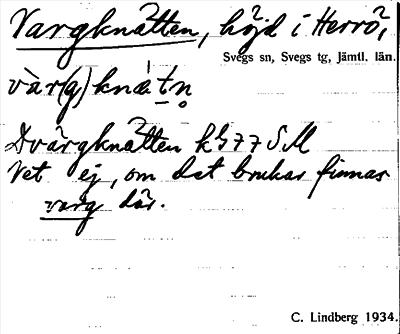 Vargknätten, höjd i Herrö,
Svegs sn, Svegs tg, Jämtl. län.
vàr(g)knä́.tn̥
Dvärgknätten kb 77 S.M
Vet ej, om det brukar finnas
varg där.
C. Lindberg 1934.